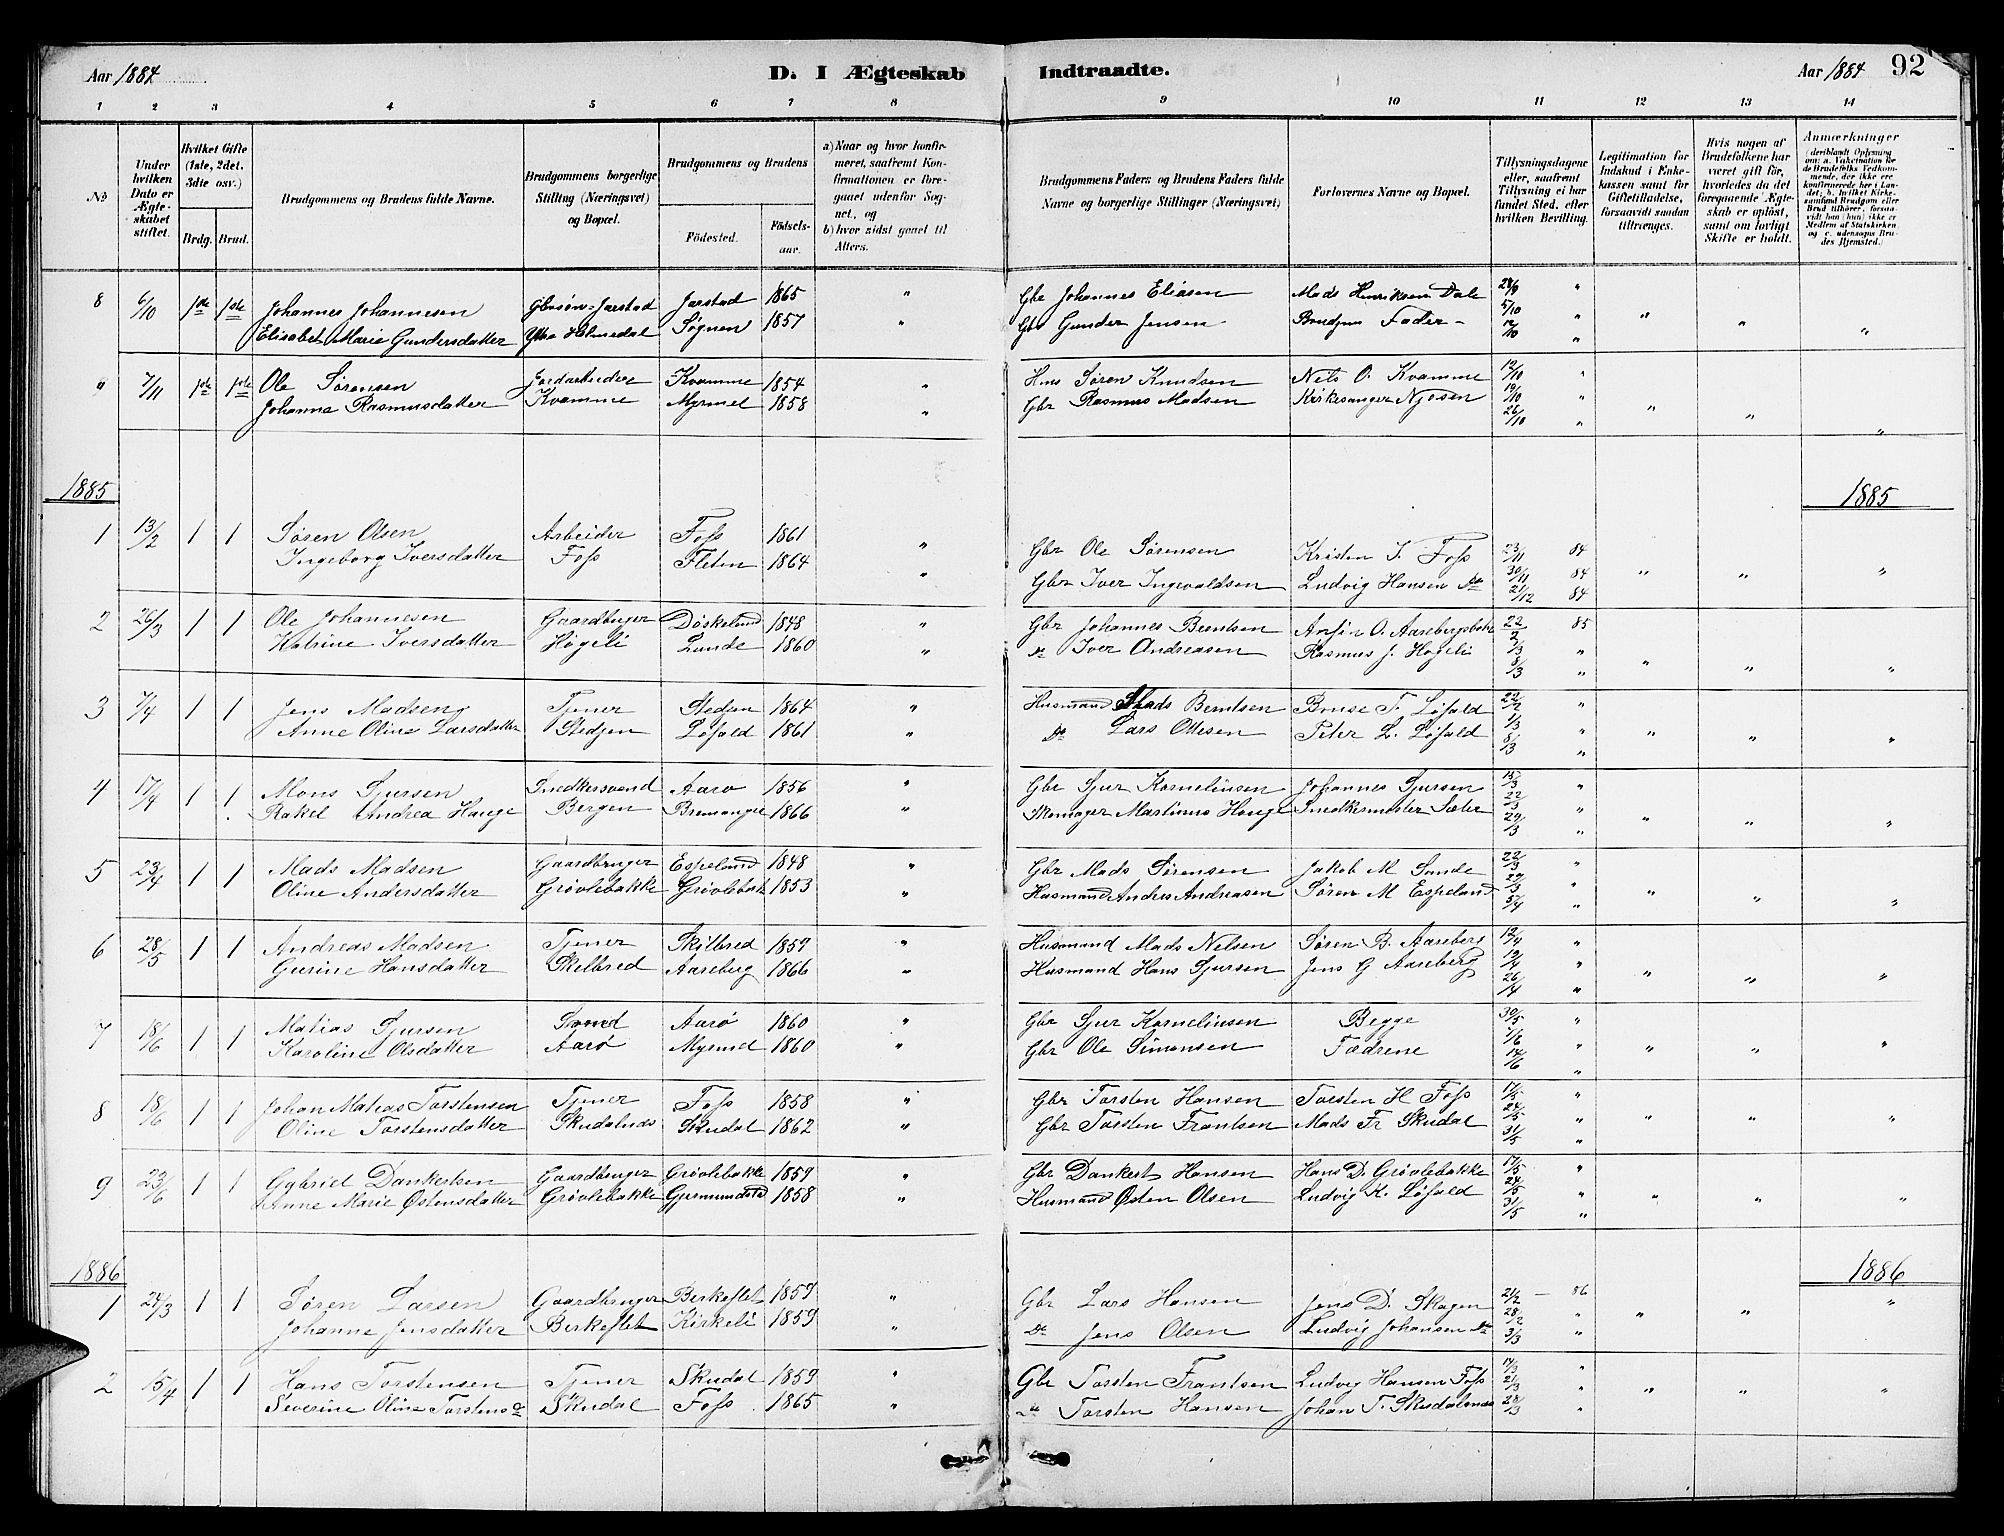 Aar 1884. D. I Ægteskab Indtraadte. Aar 1884 92
1 2 3 4 5 6 7 8 9 10 11 12 13 14
№
Under hvilken Dato er Ægteskabet stiftet.
Hvilket Gifte (1ste, 2det, 3die osv.)
Brdg. Brud.
Brudgommens og Brudens fulde Navne.
Brudgommens borgerlige Stilling (Næringsvei) og Bopæl.
Brudgommens og Brudens
Fødested. Fødselsaar.
a) Naar og hvor konfirmeret, saafremt Konfirmationen er foregaaet udenfor Sognet, og
b) hvor sidst gaaet til Alters.
Brudgommens Faders og Brudens Faders fulde Navne og borgerlige Stillinger (Næringsvei)
Forlovernes Navne og Bopæl.
Tillysningsdagene eller, saafremt Tillysning ei har fundet Sted, efter hvilken Bevilling.
Legitimation for Indskud i Enkekassen samt for Giftetilladelse, forsaavidt saadan tiltrænges.
Hvis nogen af Brudefolkene har været gift før, hvorledes da det foregaaende Ægteskab er opløst, samt om lovligt Skifte er holdt.
Anmærkninger (deriblandt Oplysning om: a. Vakcination for de Brudefolks Vedkommende, der ikke ere konfirmerede her i Landet; b. hvilket Kirkesamfund Brudgom eller Brud tilhører, forsaavidt han (hun) ikke er Medlem af Statskirken, og c. udensogns Brudes Hjemsted.)
8 6/10 1ste 1ste Johannes Johannesen Gbrsøn Jarstad Jarstad 1865 " Gbr Johannes Eliasen Mads Henriksen Dale 28/9 "
Elisabet Marie Gundersdatter Helmedal Søgnen 1857 " Gbr Gunder Jensen Brudens Fader - 5/10 " " " "
12/10 "
" 7/11 1ste 1ste Ole Sørensen Jordarbeider Kvamme 1854 " Hms Søren Knudsen Nels O. Kvamme 12/10 "
Johanna Rasmusdatter Kvamme Myrmel 1858 " Gbr Rasmus Madsen Kirkesanger Njøsen 19/10 " " " "
26/10 "
1885 1885
1 13/2 1 1 Søren Olsen Arbeider Foss 1861 " Gbr Ole Sørensen Kristen J. Foss 23/11 84
Ingeborg Iversdatter Foss Fleten 1864 " Gbr Iver Ingevaldsen Ludvig Hansen do 30/11 84 " " "
21/12 84
2 26/3 1 1 Ole Johannesen Gaardbruger Døskeland 1848 " Gbr Johannes Berntsen Anfin O. Aarebergsbak 22/2 85
Katrine Iversdatter Høgeli Lunde 1860 " do Iver Andreasen Rasmus J. Høgeli 1/3 " " " "
8/3 "
3 7/4 1 1 Jens Madsen Tjener Stedjen 1864 " Husmand Mads Berntsen Brunse T. Løfald 22/2 "
Anne Oline Larsdatter Stedjen Løfald 1861 " do Lars Ottesen Peter L. Løfald 1/3 " " " "
8/3 "
4 17/4 1 1 Mons Sjursen Snedkersvend Aarø 1856 " Gbr Sjur Kornelinsen Johannes Sjursen 15/3 "
Rakel Andrea Hauge Bergen Bremanger 1866 " Skomager Martinus Hauge Snedkermester Sæter 22/3 " " " "
29/3 "
5 23/4 1 1 Mads Madsen Gaardbruger Espeland 1848 " Gbr Mads Sørensen Jakob M Sunde 22/3 "
Oline Andersdatter Grøvlebakke Grøvlebak 1853 " Husmand Anders Andreasen Søren M Espeland 29/3 " " " "
5/4 "
6 28/5 1 1 Andreas Madsen Tjener Skilbred 1859 " Husmand Mads Nelsen Søren B. Aareberg 12/4 "
Gurine Hansdatter Skilbred Aareberg 1866 " Husmand Hans Sjursen Jens G Aareberg 19/4 " " " "
26/4 "
7 18/6 1 1 Matias Sjursen Svend Aarø 1860 " Gbr Sjur Kornelinsen Begge 30/5 "
Karoline Olsdatter Aarø Myrmel 1860 " Gbr Ole Simonsen Fædrene 7/6 " " " "
14/6 "
8 18/6 1 1 Johan Matias Torstensen Tjener Foss 1858 " Gbr Torsten Hansen Torsten H Foss 17/5 "
Oline Torstensdatter Skudalnæs Skudal 1862 " Gbr Torsten Frantsen Mads Fr Skudal 24/5 " " " "
31/5 "
9 23/6 1 1 Gabriel Dankertsen Gaardbruger Grøvlebakke 1859 " Gbr Dankert Hansen Hans D. Grøvlebakke 17/5 "
Anne Marie Østensdatter Grøvlebakke Gjermundstd 1858 " Husmand Østen Olsen Ludvig K. Løfald 24/5 " " " "
31/5 "
1886 1886
1 24/3 1 1 Søren Larsen Gaardbruger Birkeflet 1859 " Gbr Lars Hansen Jens D. Skagen 21/2 - 86 "
Johanne Jensdatter Birkeflet Kirkeli 1859 " do Jens Olsen Ludvig Johansen do 28/2 " " "
3/3 "
2 15/4 1 1 Hans Torstensen Tjener Skudal 1859 " Gbr Torsten Frantsen Ludvig Hansen Foss 14/3 "
Severine Oline Torstensd Skudal Foss 1865 " " Torsten Hansen Johan T. Skudalsnæs 21/3 " " " "
28/3 "